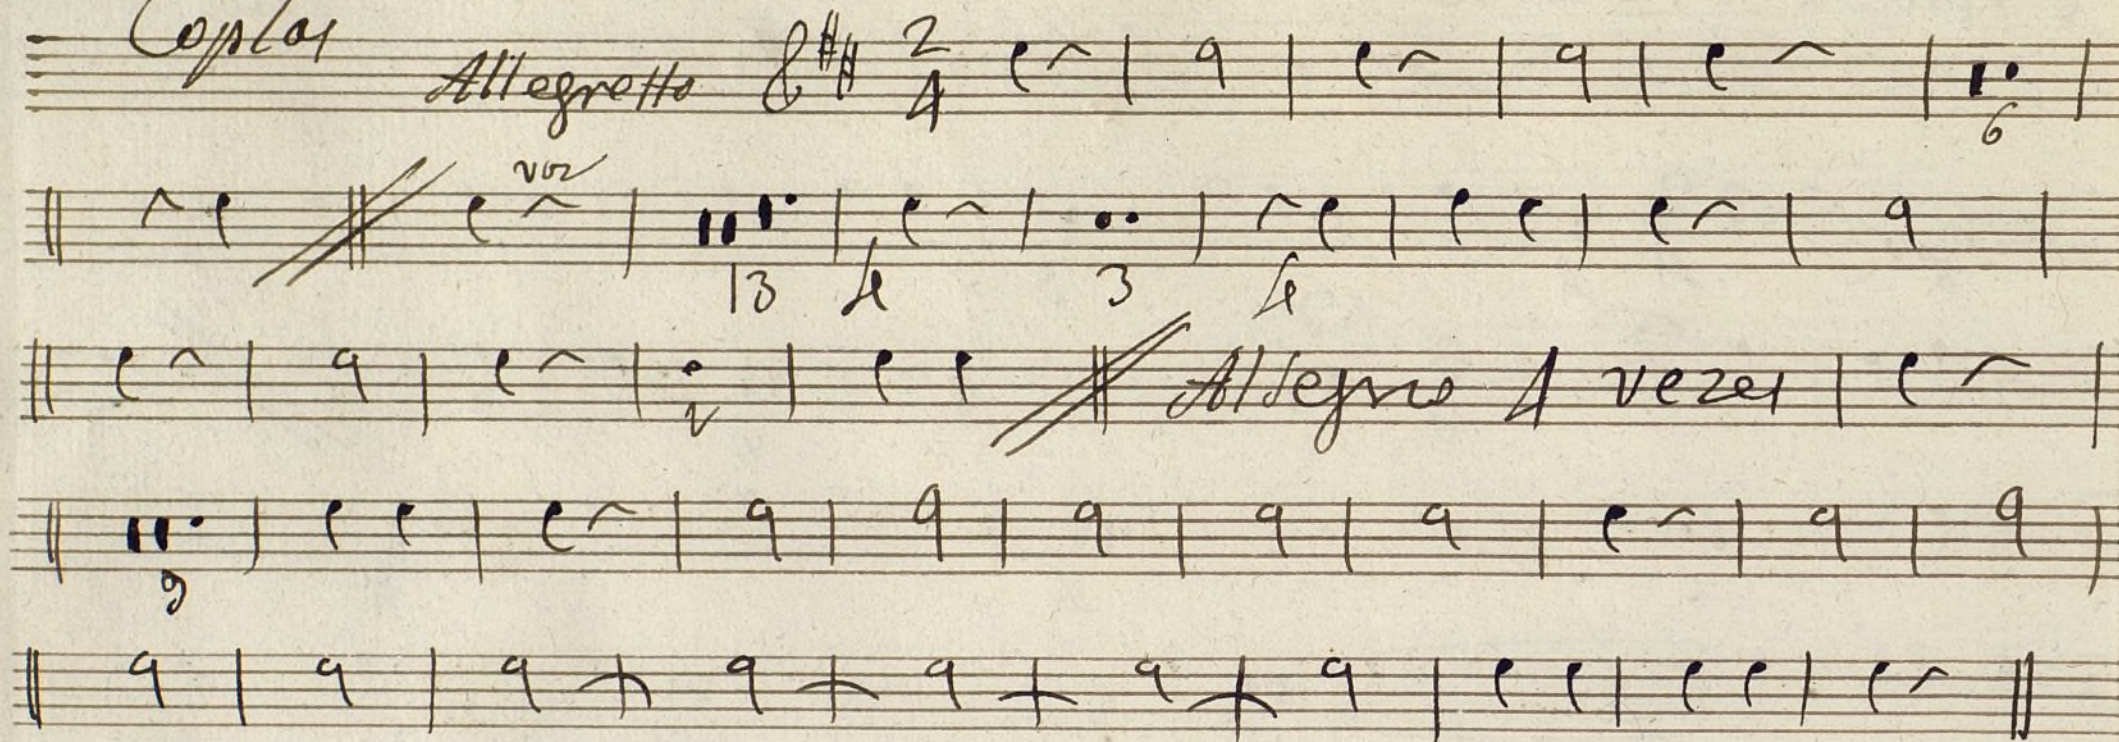 Coplas
Allegretto 2 4
6
voz
13 4 3 4
2 Allegro 4 vezes
9